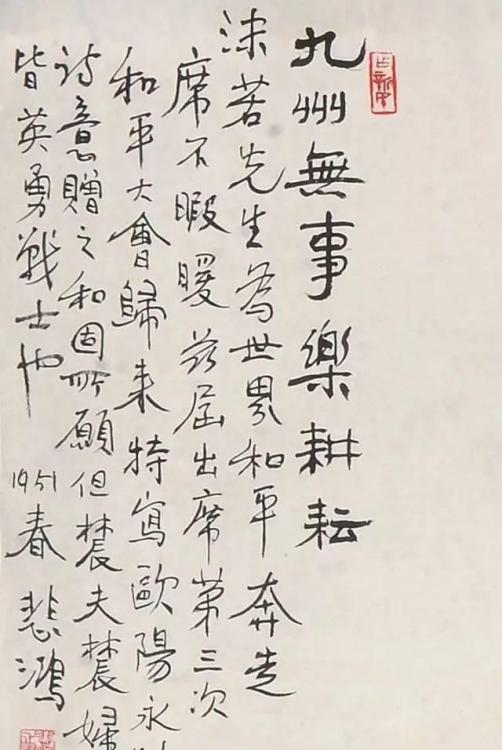 九州無事樂耕耘
沫若先生為世界和平奔走
席不暇暖茲屆出席第三次
和平大會歸来特寫歐陽永
詩意贈之和固所願但辳夫辳婦
皆英勇戰士也 1951春 悲鴻